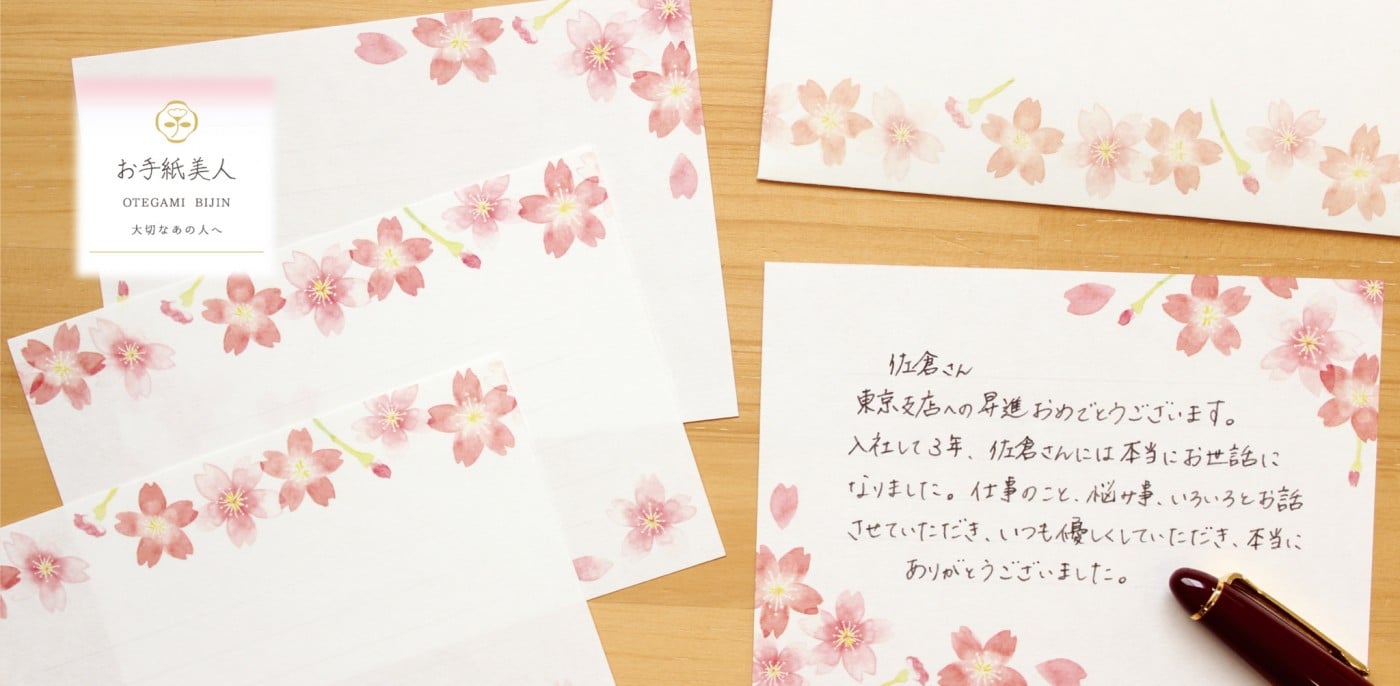 お手紙美人
OTEGAMI BIJIN
大切なあの人へ
佐倉さん
東京支店への昇進おめでとうございます。
入社して3年、佐倉さんには本当にお世話に
なりました。仕事のこと、悩み事、いろいろとお話
させていただき、いつも優しくしていただき、本当に
ありがとうございました。